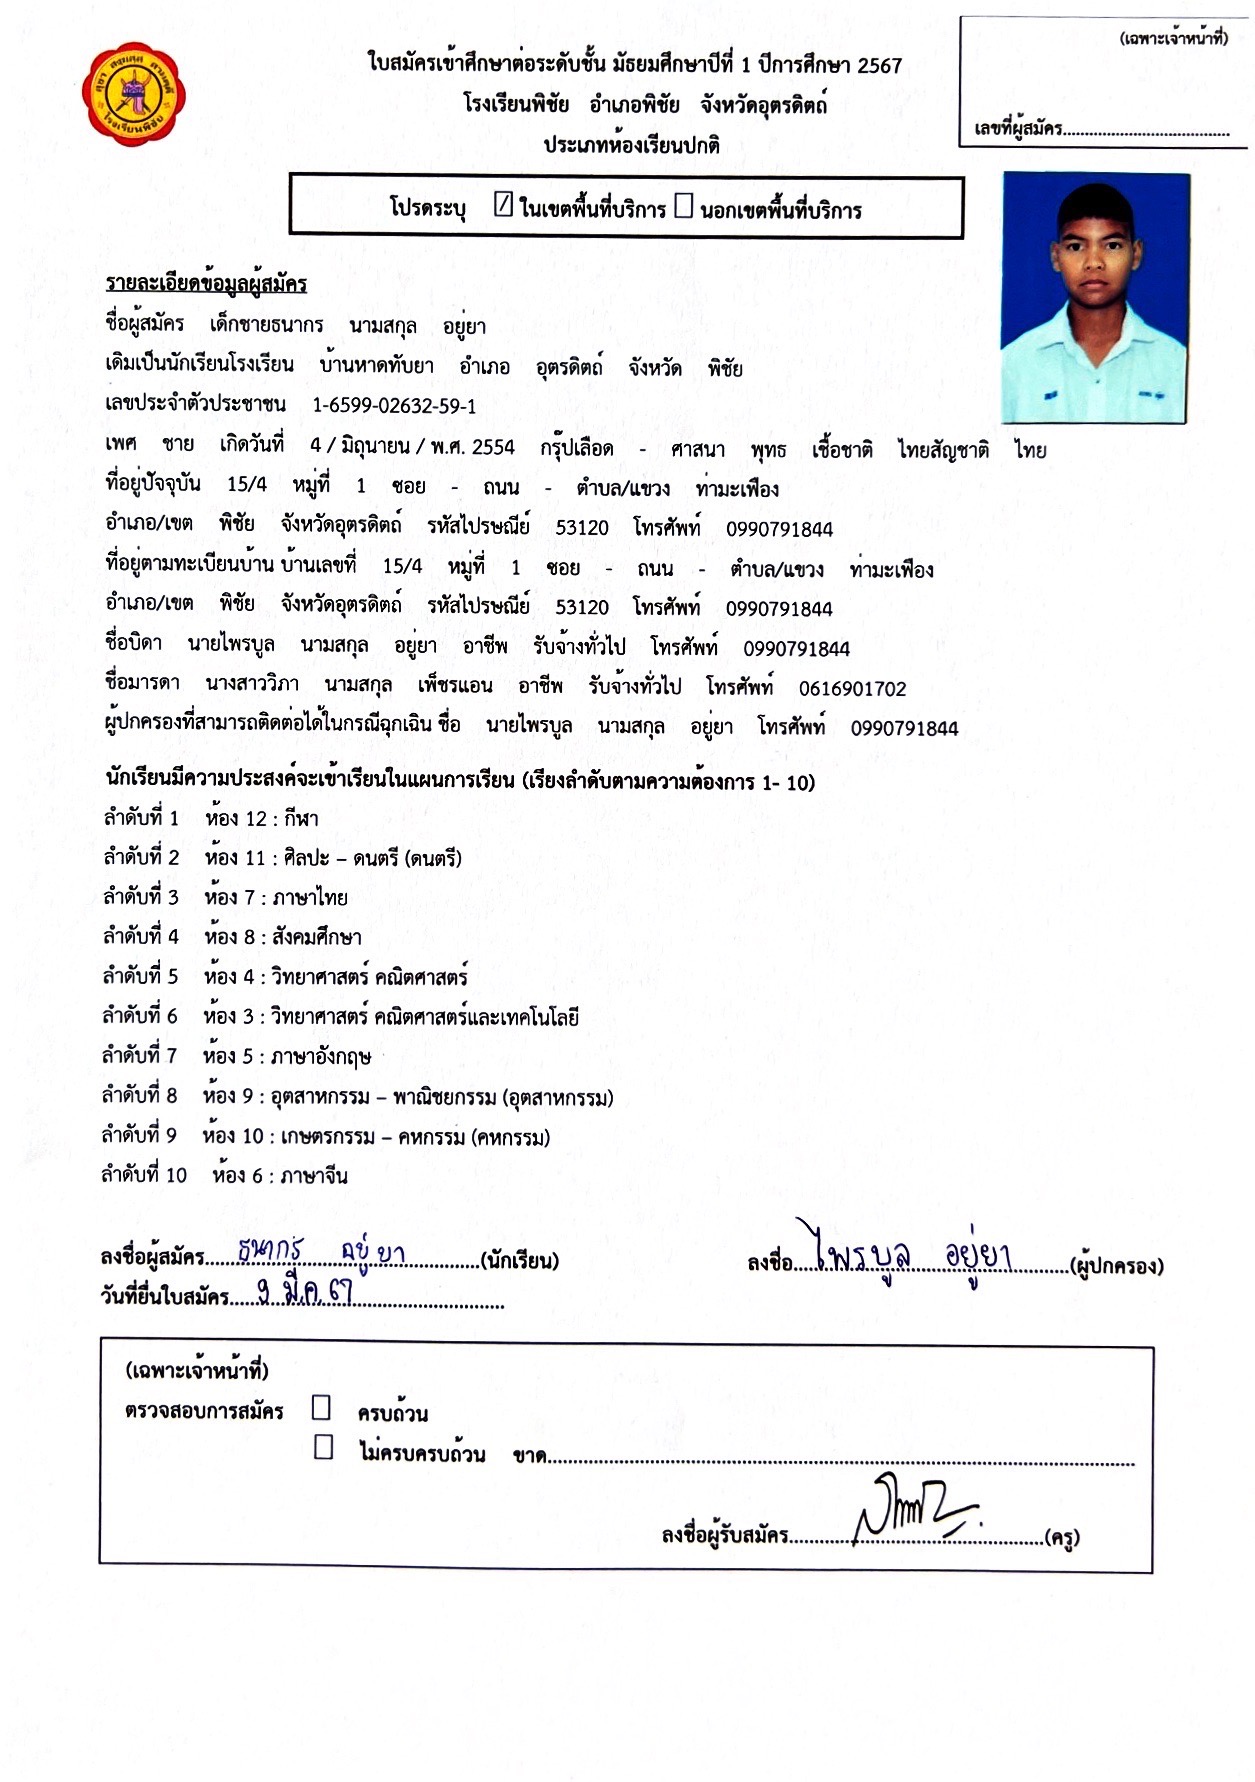 (เฉพาะเจ้าหน้าที่)
เลขที่ผู้สมัคร......................................
ใบสมัครเข้าศึกษาต่อระดับชั้น มัธยมศึกษาปีที่ 1 ปีการศึกษา 2567
โรงเรียนพิชัย อำเภอพิชัย จังหวัดอุตรดิตถ์
ประเภทห้องเรียนปกติ
โรงเรียนพิชัย
โปรดระบุ ☑ ในเขตพื้นที่บริการ ☐ นอกเขตพื้นที่บริการ
รายละเอียดข้อมูลผู้สมัคร
ชื่อผู้สมัคร เด็กชายธนากร นามสกุล อยู่ยา
เดิมเป็นนักเรียนโรงเรียน บ้านหาดทับยา อำเภอ อุตรดิตถ์ จังหวัด พิชัย
เลขประจำตัวประชาชน 1-6599-02632-59-1
เพศ ชาย เกิดวันที่ 4 / มิถุนายน / พ.ศ. 2554 กรุ๊ปเลือด - ศาสนา พุทธ เชื้อชาติ ไทยสัญชาติ ไทย
ที่อยู่ปัจจุบัน 15/4 หมู่ที่ 1 ซอย - ถนน - ตำบล/แขวง ท่ามะเฟือง
อำเภอ/เขต พิชัย จังหวัดอุตรดิตถ์ รหัสไปรษณีย์ 53120 โทรศัพท์ 0990791844
ที่อยู่ตามทะเบียนบ้าน บ้านเลขที่ 15/4 หมู่ที่ 1 ซอย - ถนน - ตำบล/แขวง ท่ามะเฟือง
อำเภอ/เขต พิชัย จังหวัดอุตรดิตถ์ รหัสไปรษณีย์ 53120 โทรศัพท์ 0990791844
ชื่อบิดา นายไพรบูล นามสกุล อยู่ยา อาชีพ รับจ้างทั่วไป โทรศัพท์ 0990791844
ชื่อมารดา นางสาววิภา นามสกุล เพ็ชรแอน อาชีพ รับจ้างทั่วไป โทรศัพท์ 0616901702
ผู้ปกครองที่สามารถติดต่อได้ในกรณีฉุกเฉิน ชื่อ นายไพรบูล นามสกุล อยู่ยา โทรศัพท์ 0990791844
นักเรียนมีความประสงค์จะเข้าเรียนในแผนการเรียน (เรียงลำดับตามความต้องการ 1- 10)
ลำดับที่ 1 ห้อง 12 : กีฬา
ลำดับที่ 2 ห้อง 11 : ศิลปะ – ดนตรี (ดนตรี)
ลำดับที่ 3 ห้อง 7 : ภาษาไทย
ลำดับที่ 4 ห้อง 8 : สังคมศึกษา
ลำดับที่ 5 ห้อง 4 : วิทยาศาสตร์ คณิตศาสตร์
ลำดับที่ 6 ห้อง 3 : วิทยาศาสตร์ คณิตศาสตร์และเทคโนโลยี
ลำดับที่ 7 ห้อง 5 : ภาษาอังกฤษ
ลำดับที่ 8 ห้อง 9 : อุตสาหกรรม – พาณิชยกรรม (อุตสาหกรรม)
ลำดับที่ 9 ห้อง 10 : เกษตรกรรม – คหกรรม (คหกรรม)
ลำดับที่ 10 ห้อง 6 : ภาษาจีน
ลงชื่อผู้สมัคร.....ธนากร อยู่ยา.....(นักเรียน) ลงชื่อ.....ไพรบูล อยู่ยา.....(ผู้ปกครอง)
วันที่ยื่นใบสมัคร.....9 มี.ค. 67.....
(เฉพาะเจ้าหน้าที่)
ตรวจสอบการสมัคร ☐ ครบถ้วน
☐ ไม่ครบครบถ้วน ขาด..........................................................
ลงชื่อผู้รับสมัคร..........................................(ครู)